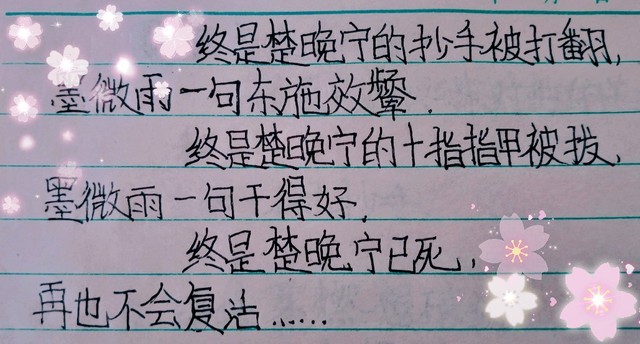 终是楚晚宁的抄手被打翻，
墨微雨一句东施效颦．
终是楚晚宁的十指指甲被拔，
墨微雨一句干得好．
终是楚晚宁已死，
再也不会复活……